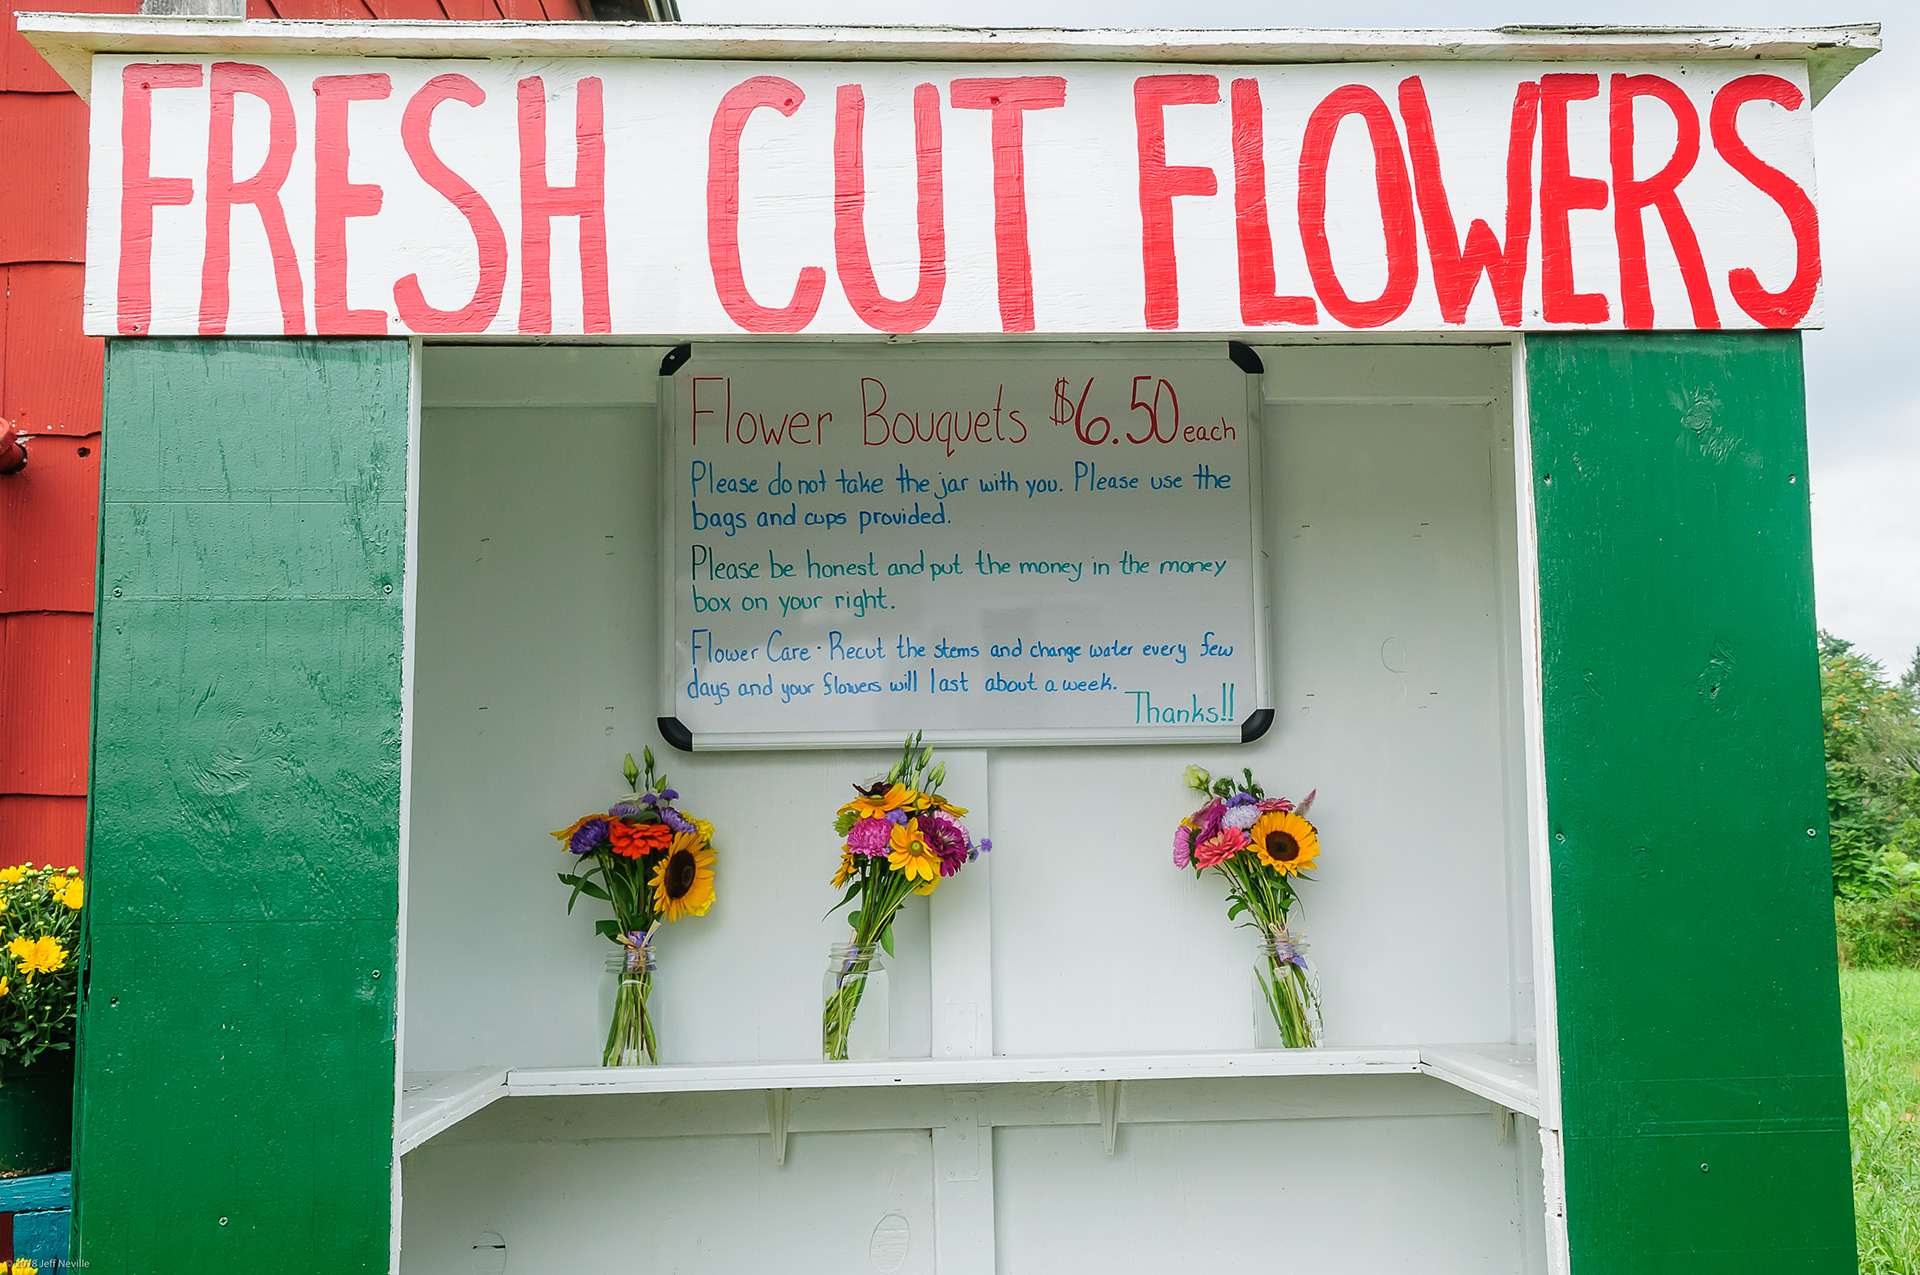 FRESH CUT FLOWERS
Flower Bouquets $6.50 each
Please do not take the jar with you. Please use the
bags and cups provided.
Please be honest and put the money in the money
box on your right.
Flower Care · Recut the stems and change water every few
days and your flowers will last about a week.
Thanks!!
© 2018 Jeff Neville